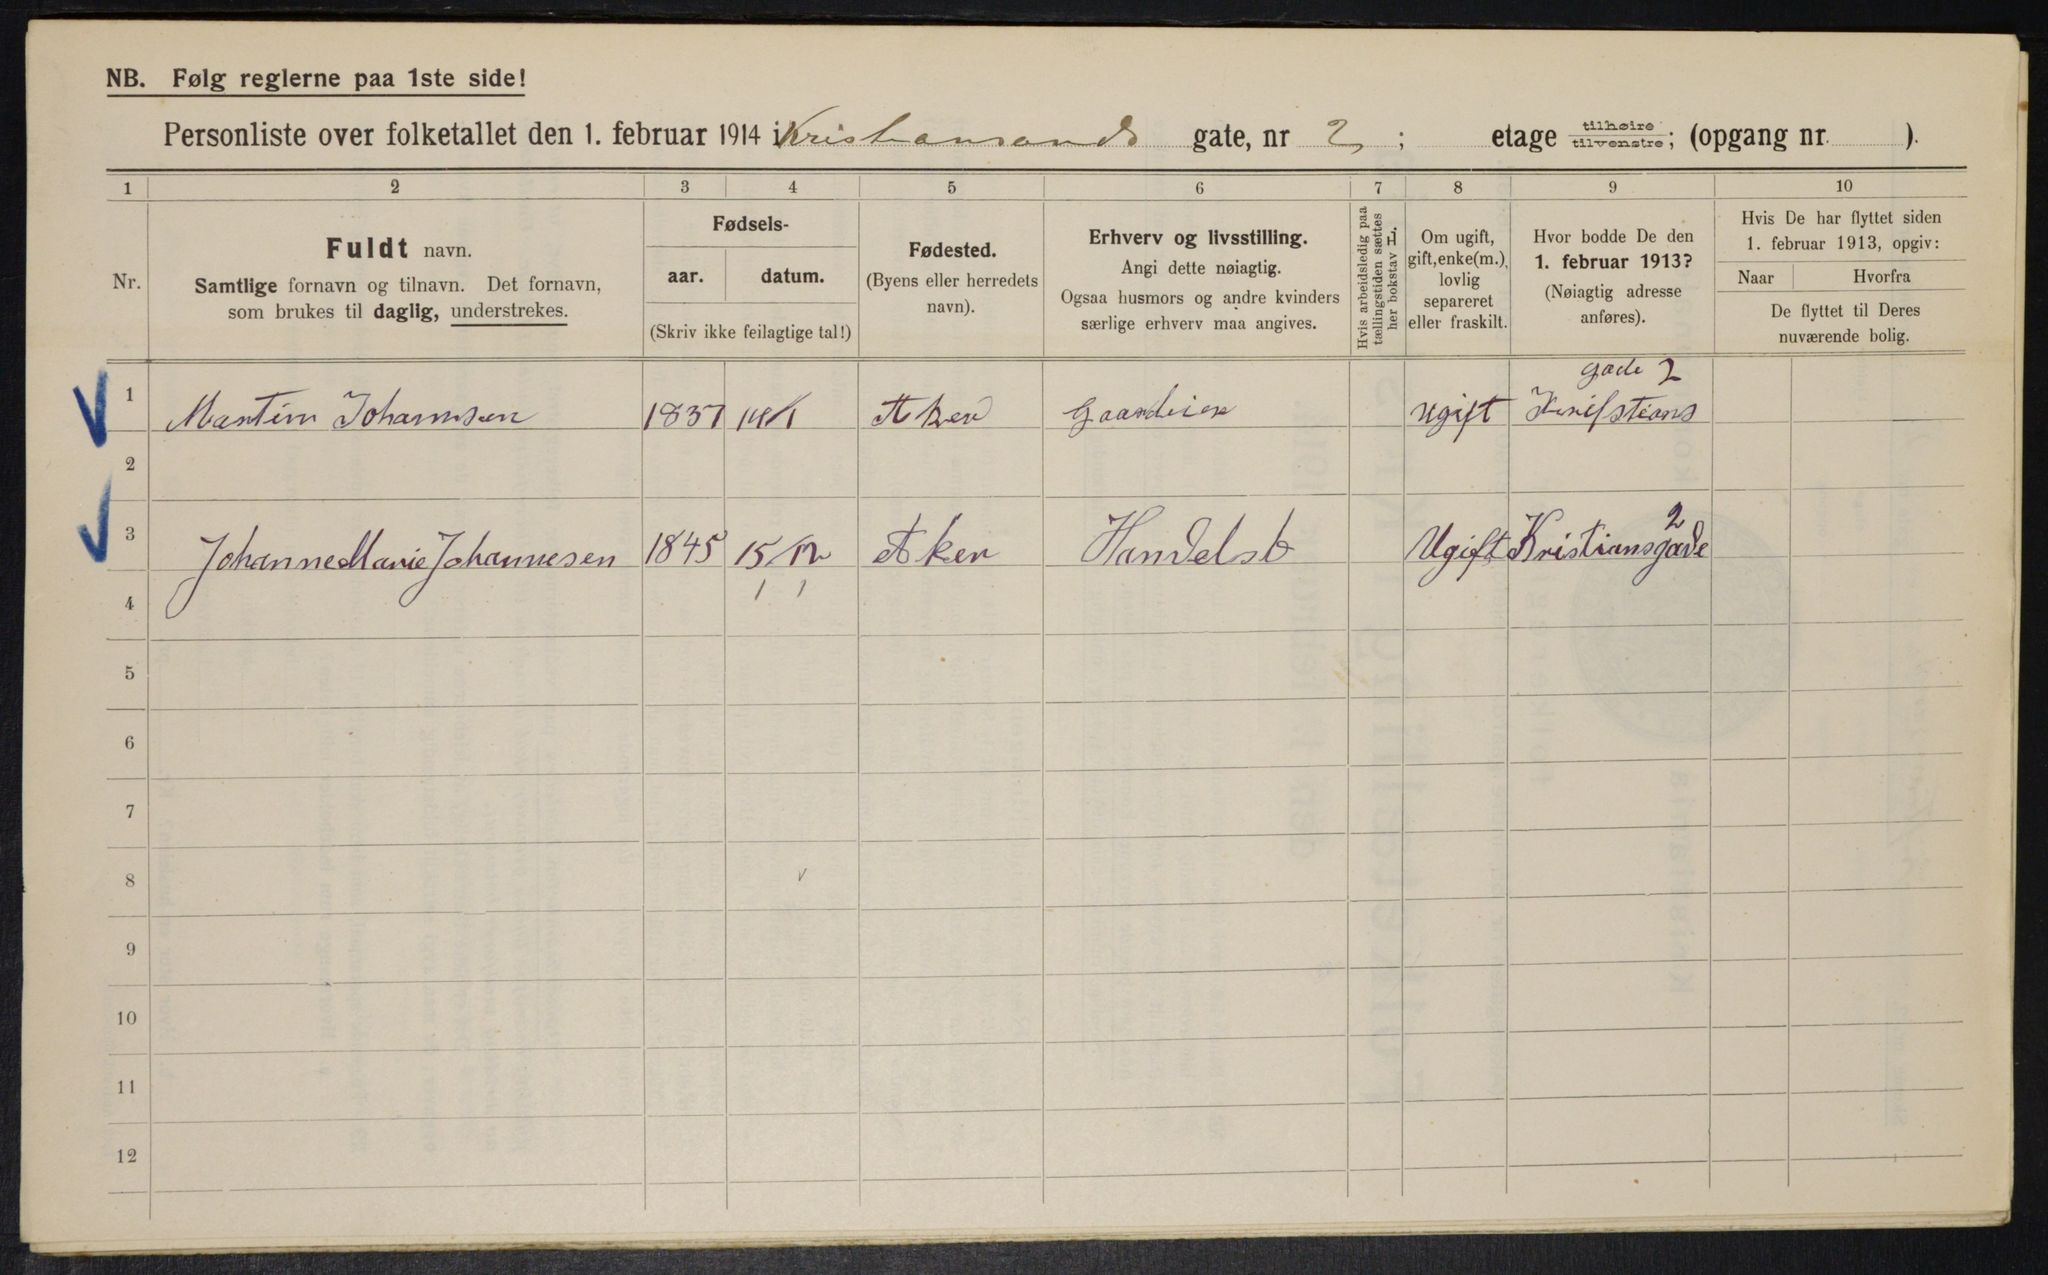 NB. Følg reglerne paa 1ste side!
Personliste over folketallet den 1. februar 1914 i Kristiansands gate, nr 2 ; etage tilhøire tilvenstre; (opgang nr. ).
1 2 3 4 5 6 7 8 9 10
Nr.
Fuldt navn.
Samtlige fornavn og tilnavn. Det fornavn,
som brukes til daglig, understrekes.
Fødsels-
aar. datum.
(Skriv ikke feilagtige tal!)
Fødested.
(Byens eller herredets
navn).
Erhverv og livsstilling.
Angi dette nøiagtig.
Ogsaa husmors og andre kvinders
særlige erhverv maa angives.
Hvis arbeidsledig paa
tællingstiden sættes
her bokstav L.
Om ugift,
gift, enke(m.),
lovlig
separeret
eller fraskilt.
Hvor bodde De den
1. februar 1913?
(Nøiagtig adresse
anføres).
Hvis De har flyttet siden
1. februar 1913, opgiv:
Naar Hvorfra
De flyttet til Deres
nuværende bolig.
gade 2
1 Martin Johannsen 1837 Aker Gaardeier ugift Kristians
2
2
3 Johanne Marie Johannesen 1845 15/12 Aker Handelsb Ugift Kristiansgade
4
5
6
7
8
9
10
11
12